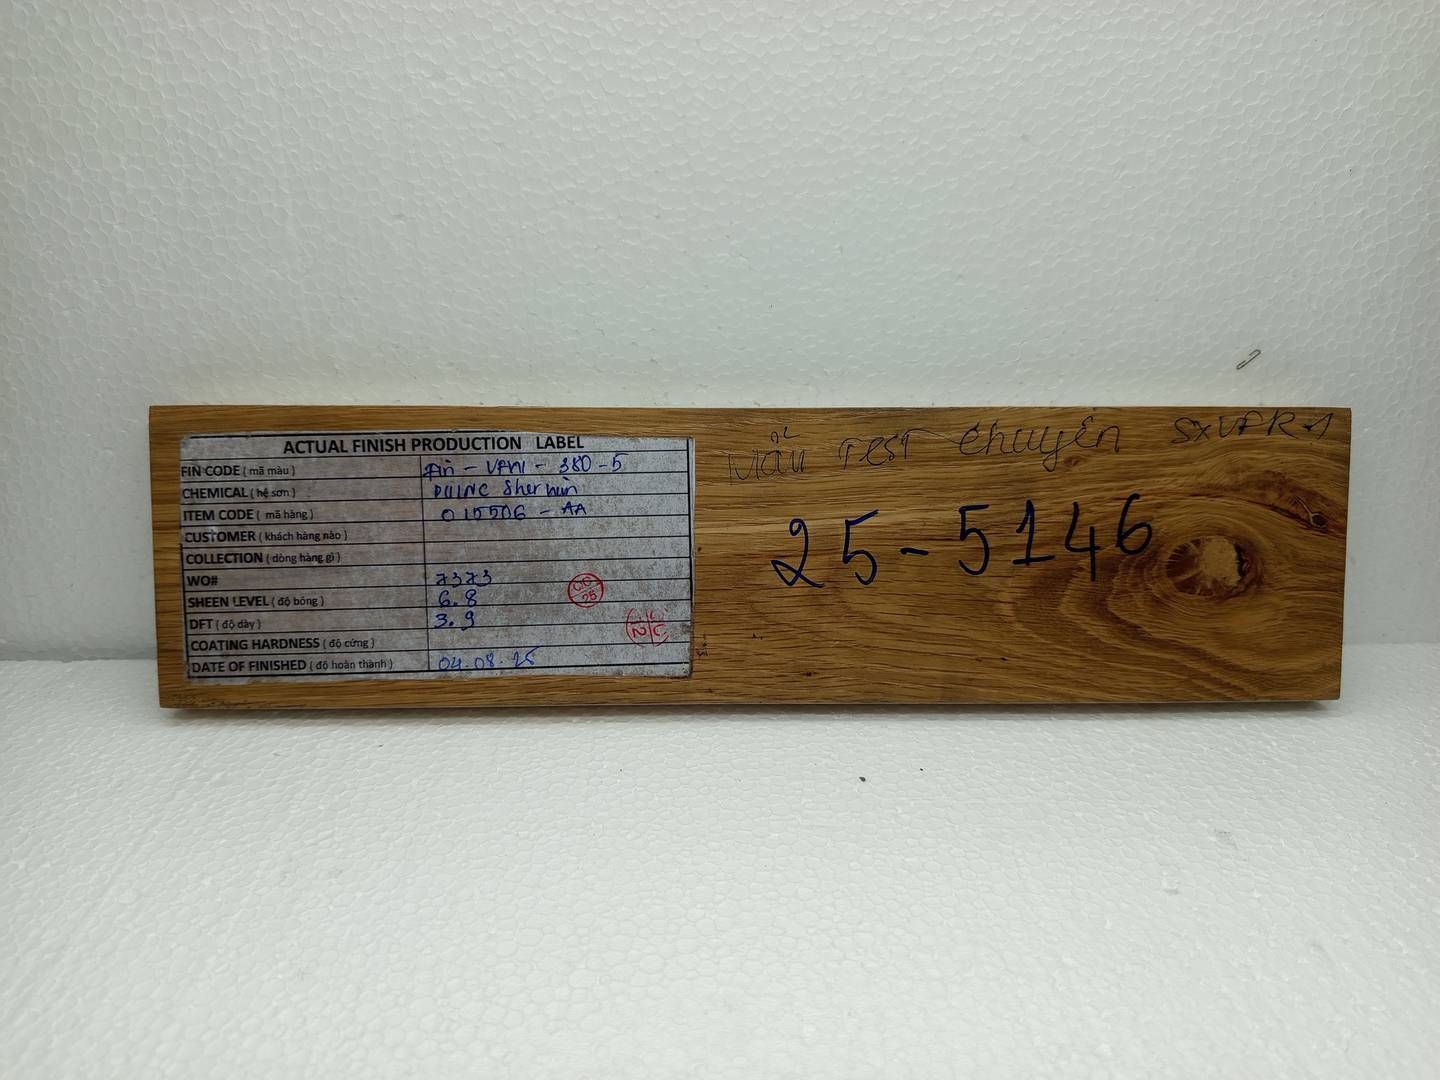 ACTUAL FINISH PRODUCTION LABEL
FIN CODE ( mã màu ) Fin - VFM - 380 - 5
CHEMICAL ( hệ sơn ) Sherwin
ITEM CODE ( mã hàng ) 015506 - AA
CUSTOMER ( khách hàng nào )
COLLECTION ( dòng hàng gì )
WO# 7373
SHEEN LEVEL ( độ bóng ) 6.8
DFT ( độ dày ) 3.9
COATING HARDNESS ( độ cứng )
DATE OF FINISHED ( độ hoàn thành ) 04.08.25
Mẫu Test chuyền
25-5146